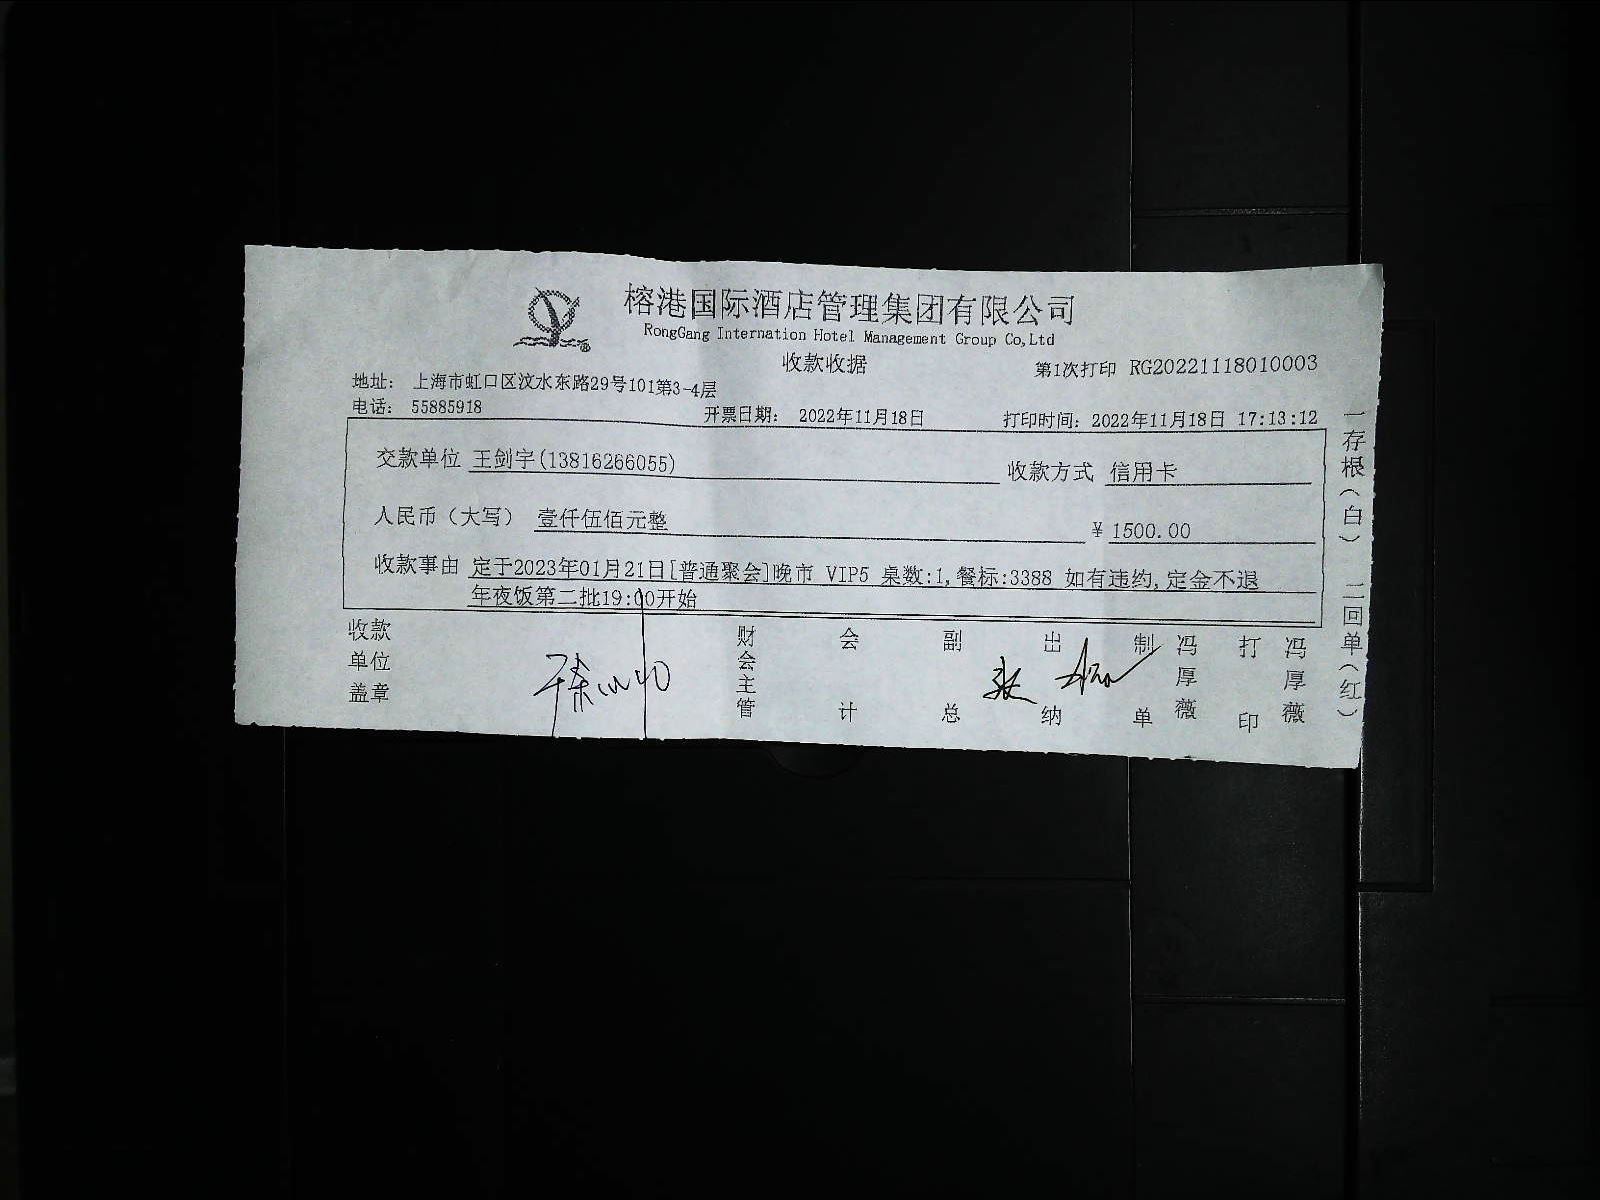 榕港国际酒店管理集团有限公司
RongGang Internation Hotel Management Group Co,Ltd
收款收据
第1次打印 RG20221118010003
地址： 上海市虹口区汶水东路29号101第3-4层
电话： 55885918
开票日期： 2022年11月18日
打印时间：2022年11月18日 17:13:12
交款单位 王剑宇(13816266055)
收款方式 信用卡
人民币（大写） 壹仟伍佰元整
￥ 1500.00
收款事由 定于2023年01月21日[普通聚会]晚市 VIP5 桌数:1,餐标:3388 如有违约,定金不退
年夜饭第二批19:00开始
收款单位盖章
财会主管
会计
副总
出纳
制单
冯厚薇
打印
冯厚薇
一存根（白） 二回单（红）